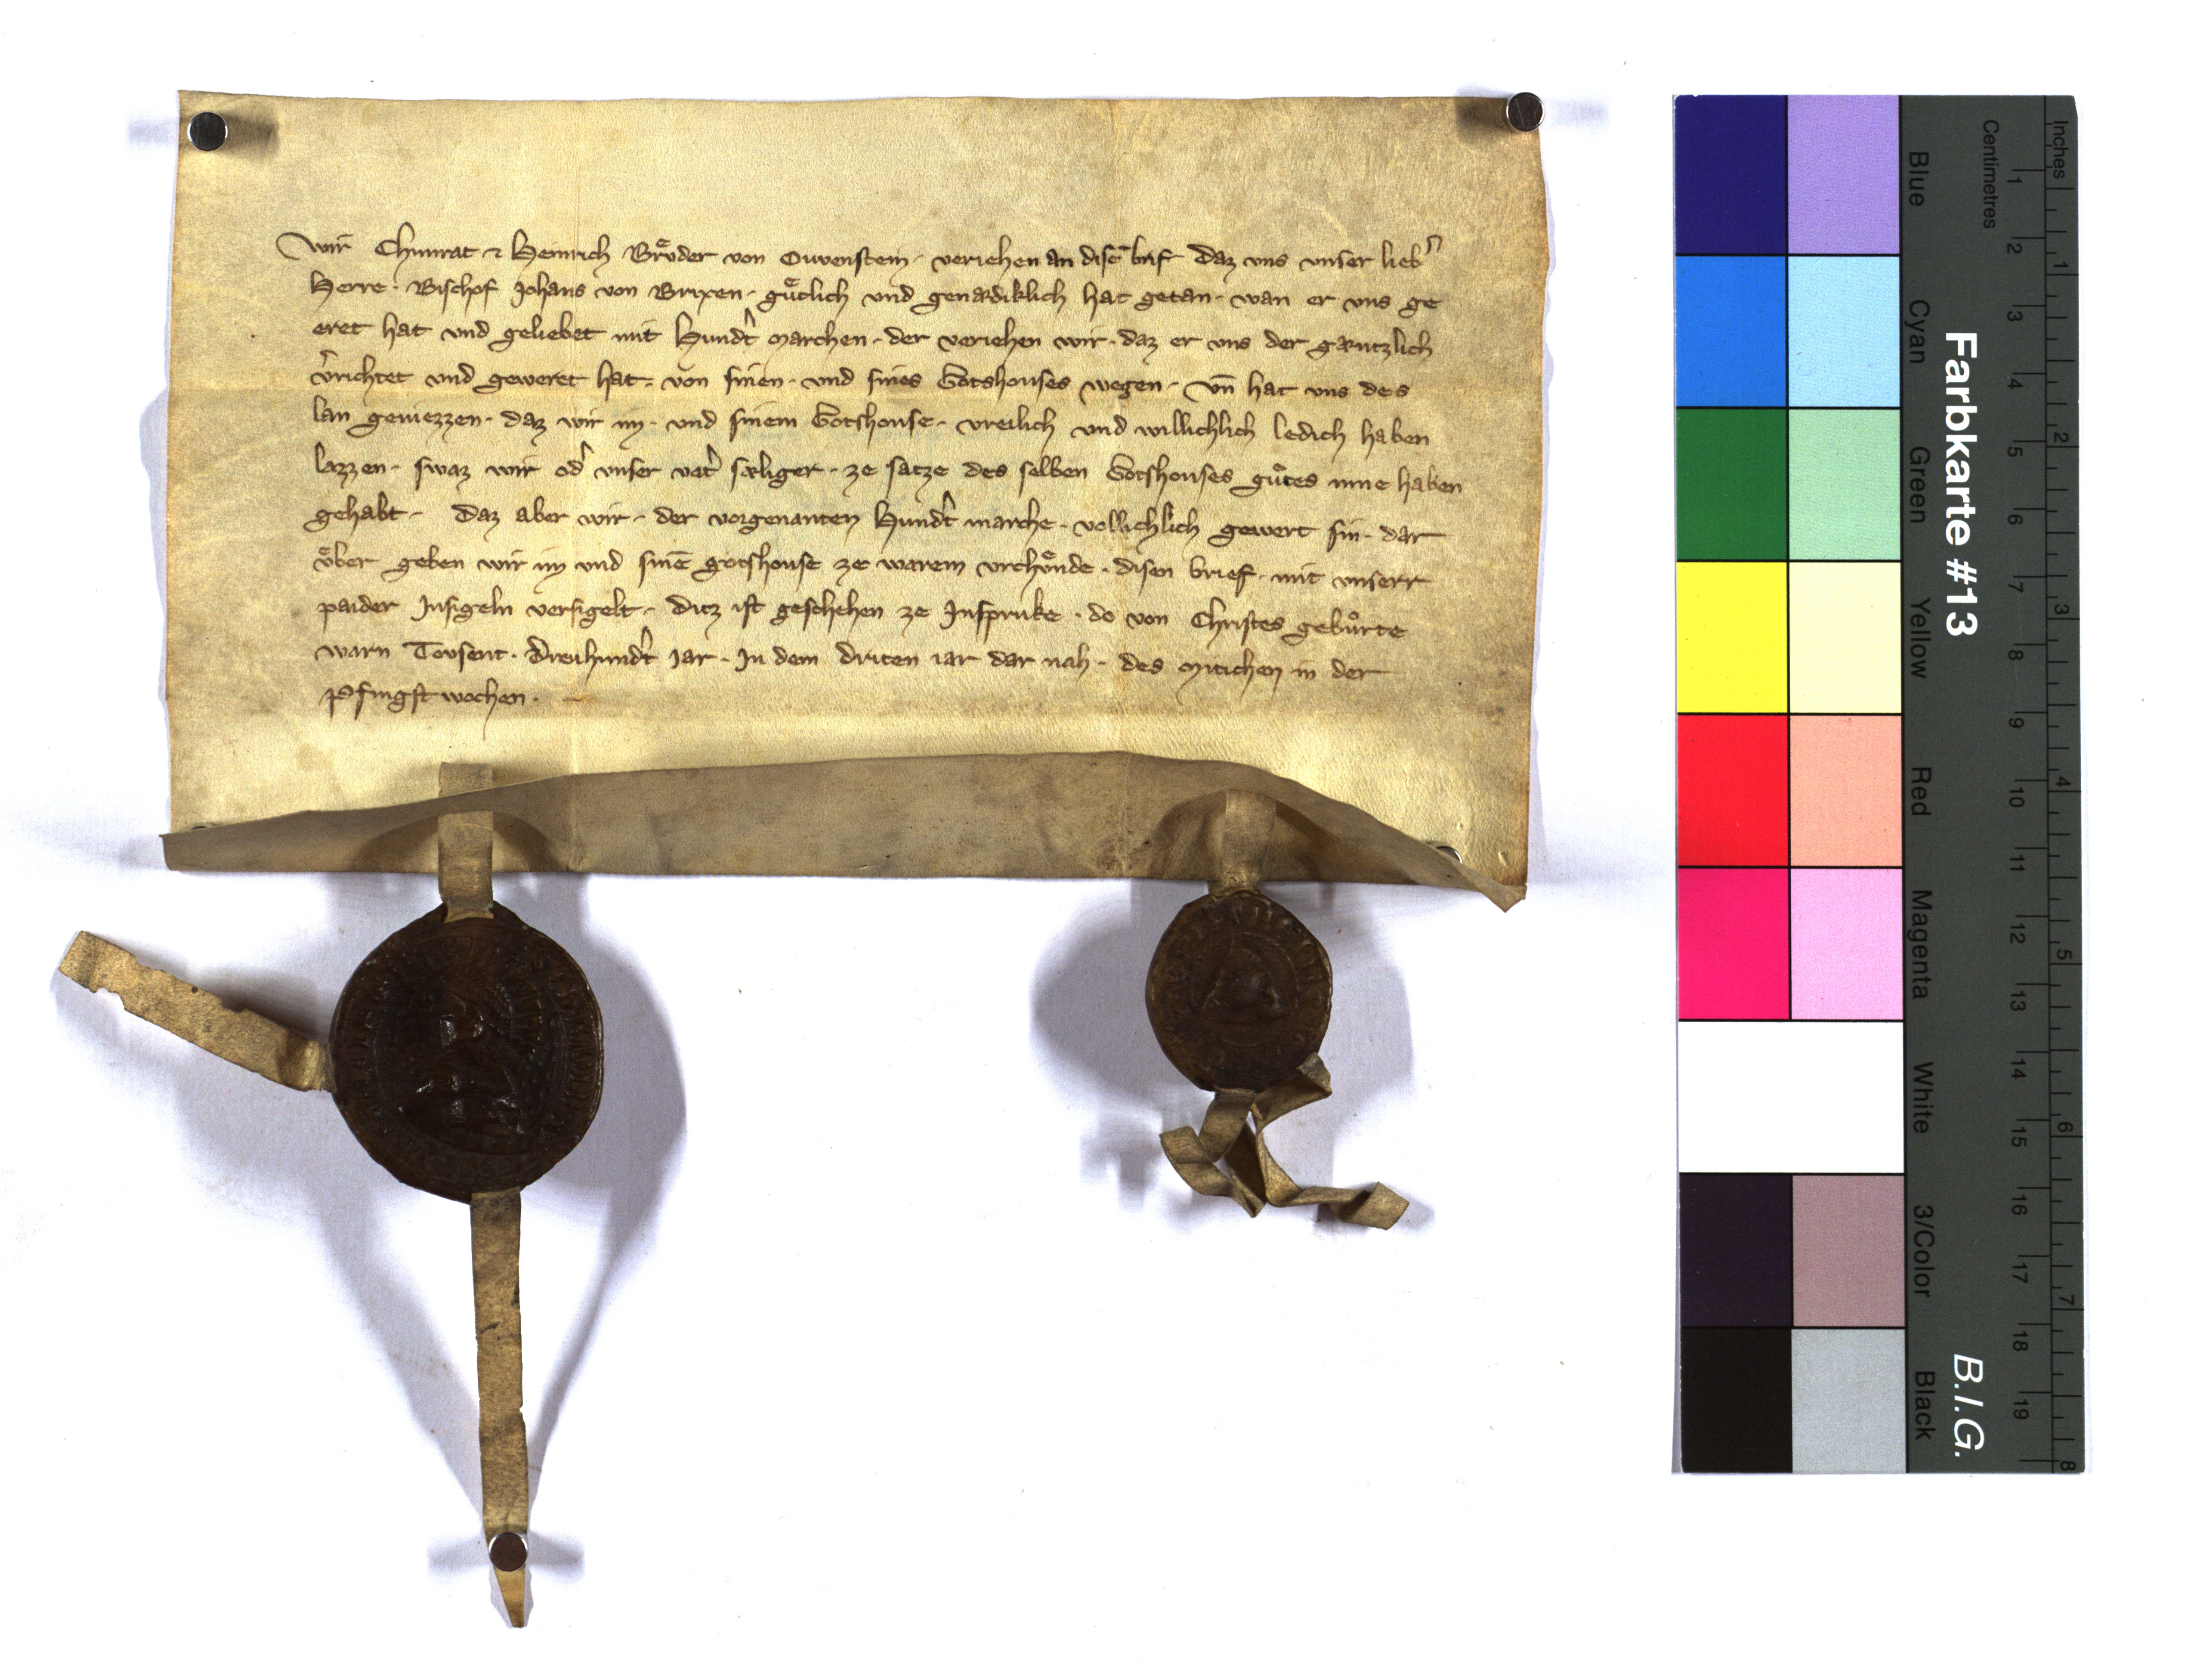 Wir Chunrat ⁊ Heinrich Brůder von Ouvenstein · veriehen an disē brif daz vns vnser lieb̾
Herre · Bischof Johans von Brixen · gůtlich vnd genædiklich hat getan · wan er vns ge
eret hat vnd geliebet mit Hund̾t marchen · der veriehen wir · daz er vns der gæntzlich
v̾richtet vnd geweret hat · von sinen · vnd sines Gotshouses wegen · vn̄ hat vns des
lan geniezzen · daz wir im · vnd sinem Gotshouse · vreilich vnd willichlich ledich haben
lazzen · swaz wir od̾ vnser vat̾ sæliger · ze satze des selben Gotshouses gůtes inne haben
gehabt · Daz aber wir · der vorgenanten Hund̾t marche · vollichlich gewert sin · dar
vͤber geben wir im vnd sinē gotshouse ze warem vrchvͤnde · disen brief · mit vnserr
paider Insigeln versigelt · Ditz ist geschehen ze Insprukke · do von Christes gebůrte
warn Tovsent · Dreuhund̾t iar · In dem driten iar dar nah · des mitichen in der
Pfingst wochen ·
Farbkarte #13
B.I.G.
Inches
Centimetres
1 2 3 4 5 6 7 8
1 2 3 4 5 6 7 8 9 10 11 12 13 14 15 16 17 18 19
Blue
Cyan
Green
Yellow
Red
Magenta
White
3/Color
Black